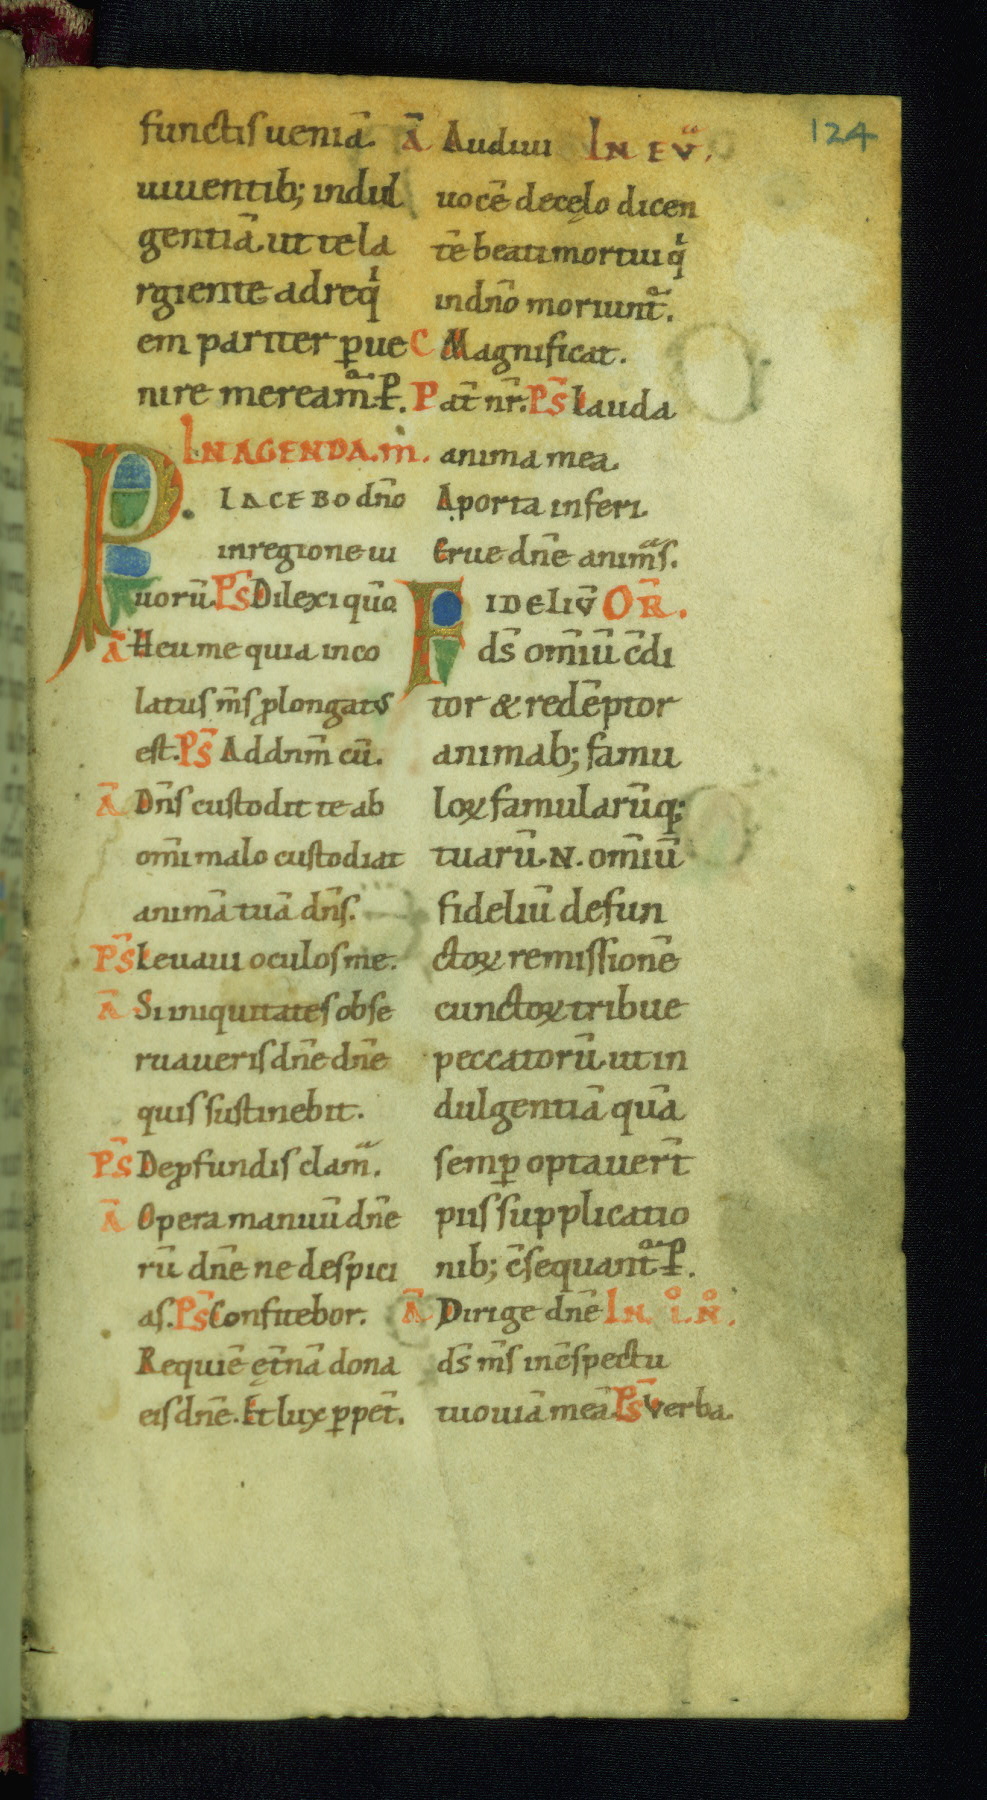 functis ueniā.
uiuentib; indul
gentiā. ut te la
rgiente ad req̍
em pariter ꝑue
nire mereamͣ. P̄.
IN AGENDA. m̍.
PLACEBO dn̄o
in regione ui
uorū. Ps̄ Dilexi qūo
Ā Heu me quia inco
latus m̄s ꝓlongatus
est. Ps̄ Ad dnm̄ cū.
Ā Dn̄s custodit te ab
om̄i malo custodiat
animā tuā dn̄s.
Ps̄ Leuaui oculos me.
Ā Si iniquitates obse
ruaueris dn̄e dn̄e
quis sustinebit.
Ps̄ De ꝓfundis clam̄.
Ā Opera manuū dn̄e
rū dn̄e ne despici
as. Ps̄ Confitebor.
Requiē ęt̄nā dona
eis dn̄e. Et lux ꝑpet̄.
124
Ā Audiui IN EV̄.
uocē de cęlo dicen
tē beati mortui q̍
in dn̄o moriunt̄.
C Magnificat.
Pat̄ nr̄. Ps̄ Lauda
anima mea.
A porta inferi.
Erue dn̄e anim̄s.
FIDELIŪ OR̄.
ds̄ om̄iū c̄di
tor & redēptor
animab; famu
loꝝ famularūq;
tuarū. N. om̄iū
fideliū defun
ctoꝝ remissionē
cunctoꝝ tribue
peccatorū. ut in
dulgentiā quā
semꝑ optauer̄t
piis supplicatio
nib; c̄sequant̄. P̄.
Ā Dirige dn̄e IN. I̊. N̊.
ds̄ m̄s in c̄spectu
tuo uiā meā. Ps̄ Verba.